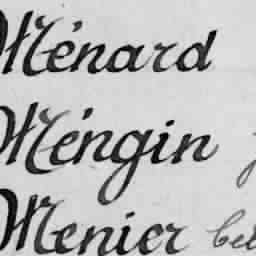 Ménard
Méngin
Menier